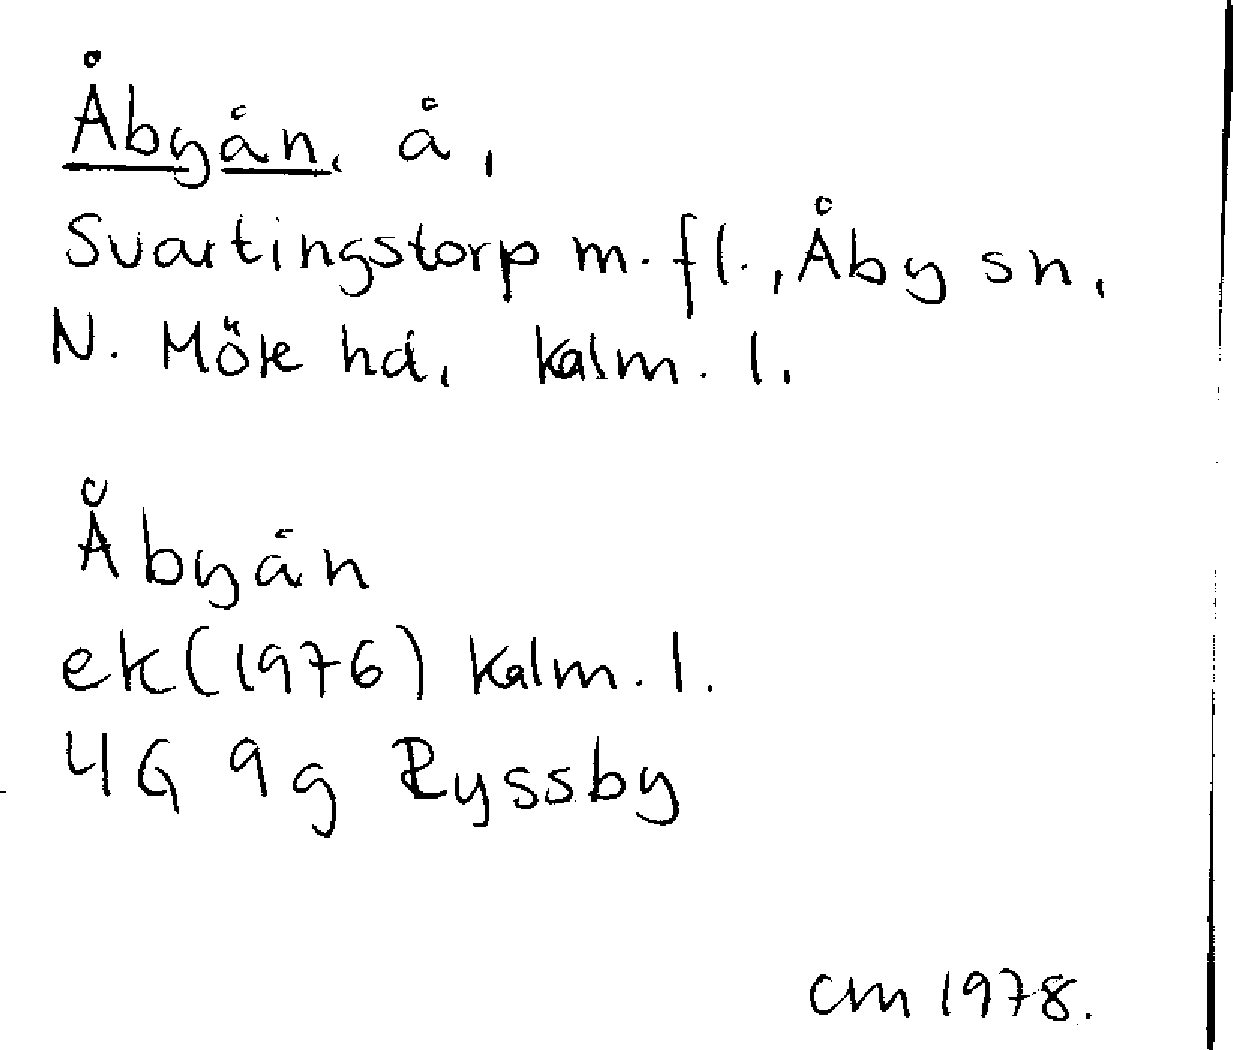 Åbyån, å,
Svartingstorp m.fl., Åby sn,
N. Möre hd, Kalm. l.
Åbyån
ek (1976) Kalm. l.
4G 9g Ryssby
CM 1978.